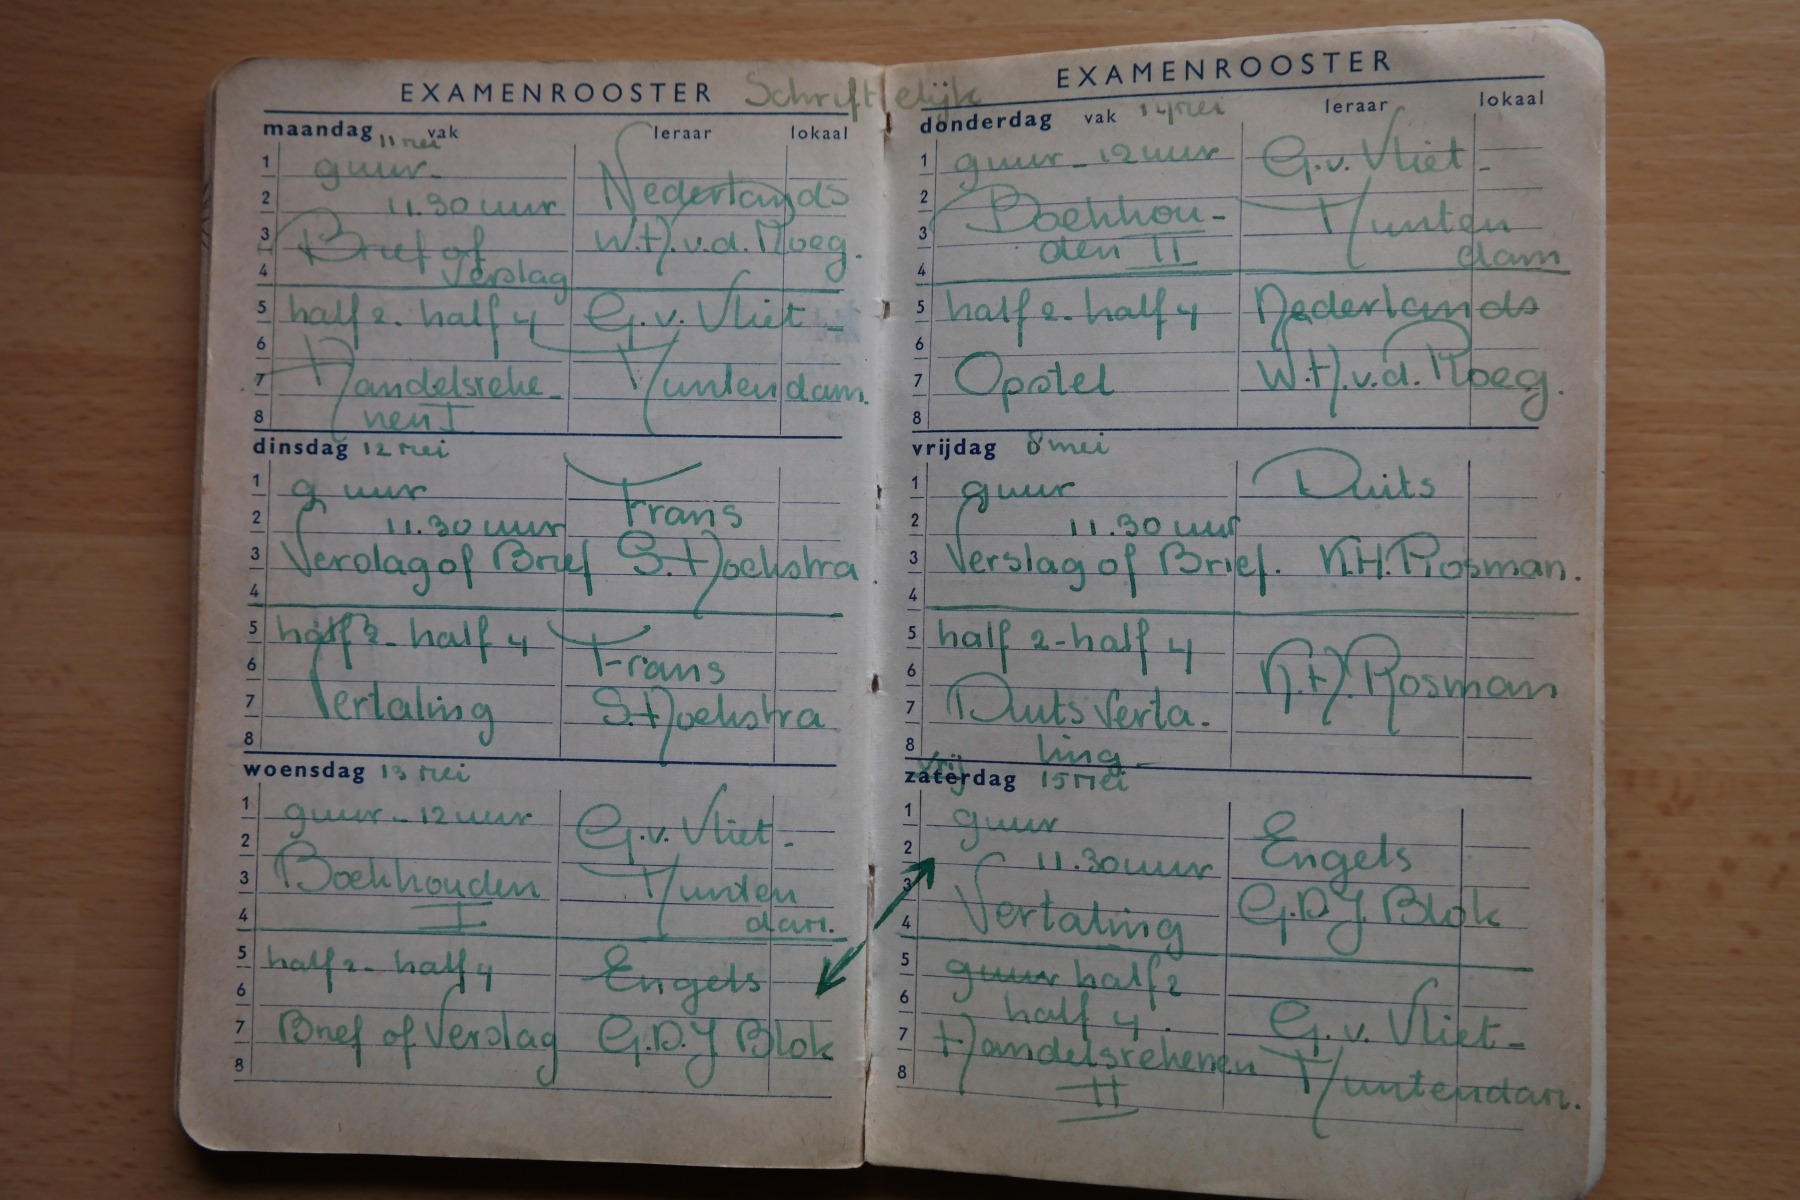 EXAMENROOSTER Schriftelijk
maandag 11 mei vak leraar lokaal
1 9 uur - Nederlands
2 11.30 uur
3 Brief of W.H.v.d. Ploeg.
4 Verslag
5 half 2 - half 4 G.v. Vliet -
6
7 Handelsreke- Huntendam.
8 nen I
dinsdag 12 mei
1 9 uur Frans
2 11.30 uur
3 Verslag of Brief S.Hoekstra
4
5 half 2 - half 4 Frans
6
7 Vertaling S.Hoekstra
8
woensdag 13 mei
1 9 uur - 12 uur G.v. Vliet -
2
3 Boekhouden Hunten
4 I dam.
5 half 2 - half 4 Engels
6
7 Brief of Verslag G.D.J Blok
8
EXAMENROOSTER
donderdag vak 14 mei leraar lokaal
1 9 uur - 12 uur G.v. Vliet -
2 Boekhou- Hunten
3 den II dam
4
5 half 2 - half 4 Nederlands
6
7 Opstel W.H.v.d. Ploeg.
8
vrijdag 8 mei
1 9 uur Duits
2 11.30 uur
3 Verslag of Brief. K.H. Rosman.
4
5 half 2 - half 4
6 K.H. Rosman
7 Duits Verta-
8 ling -
vrij
zaterdag 15 mei
1 9 uur Engels
2 11.30 uur
3 Vertaling G.D.J Blok
4
5 9 uur half 2
6 half 4. G.v. Vliet -
7 Handelsrekenen Huntendam.
8 II